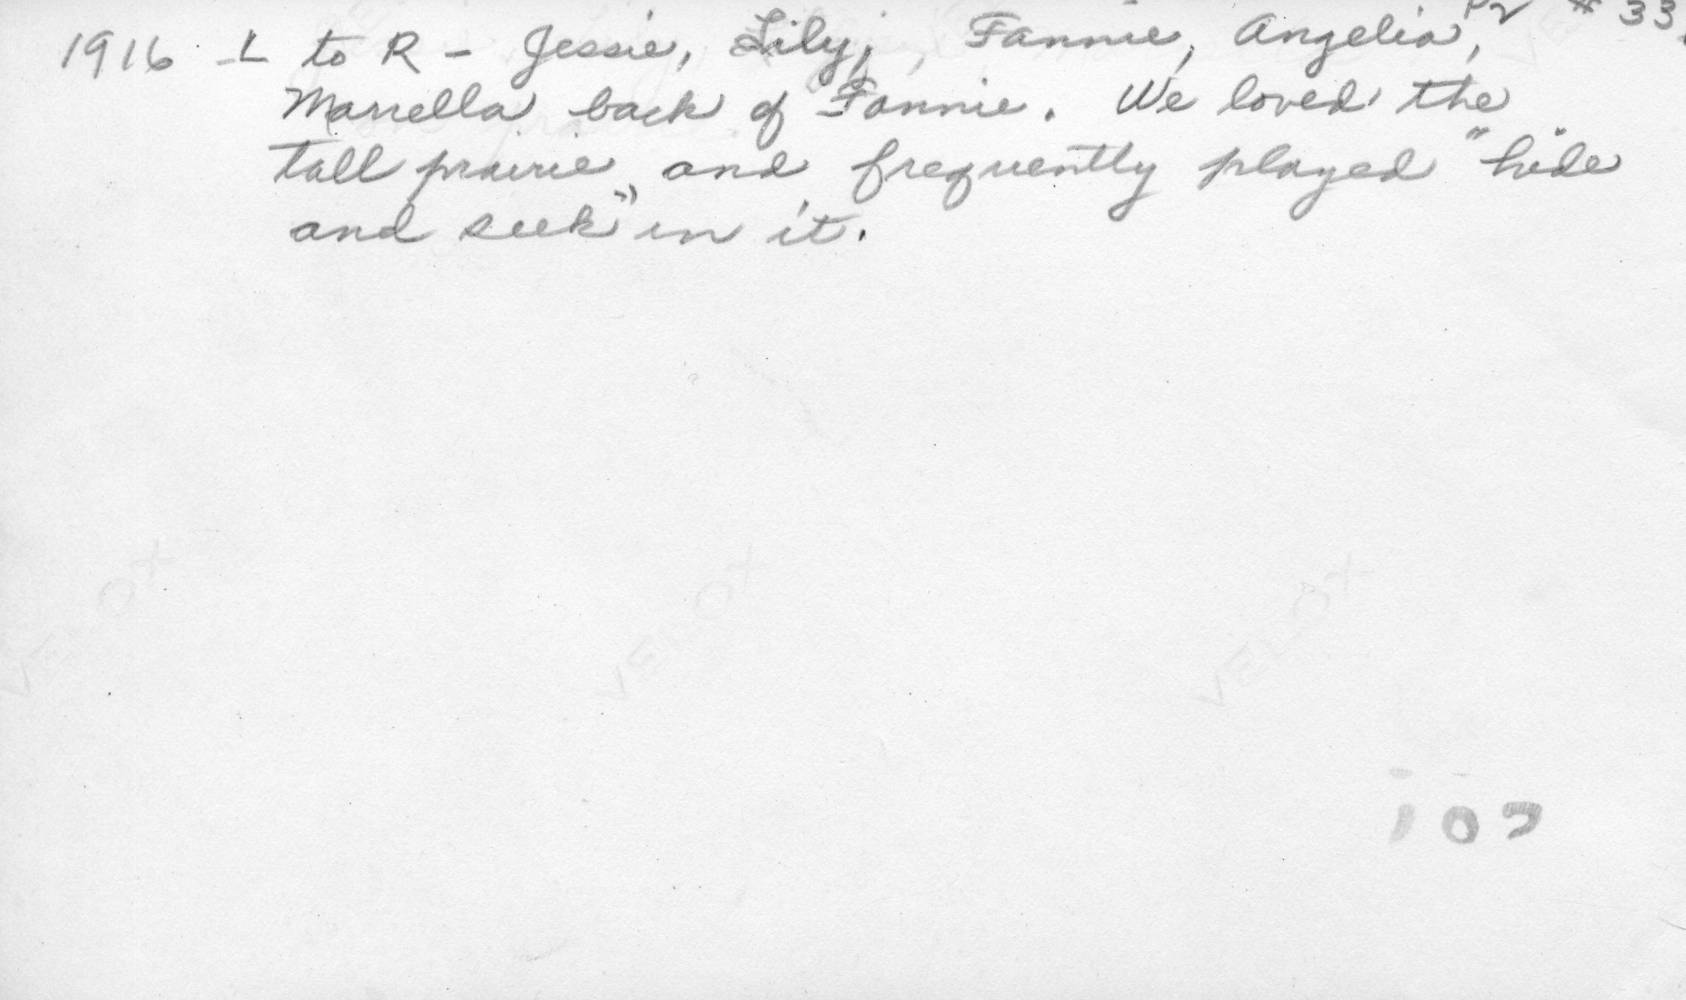 P2 # 33
1916 - L to R - Jessie, Lily, Fannie, Angelia,
Marrella back of Fannie. We loved the
tall prairie and frequently played "hide
and seek" in it.
VELOX VELOX VELOX
107